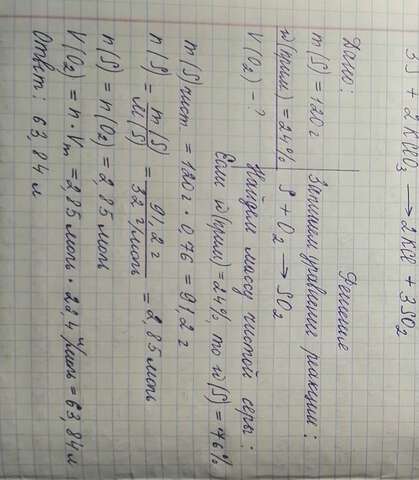 3S + 2KClO₃ → 2KCl + 3SO₂
Дано:
m(S) = 120 г
ω(прим) = 24%
V(O₂) - ?
Решение
Запишем уравнение реакции:
S + O₂ → SO₂
Найдем массу чистой серы:
Если ω(прим) = 24%, то ω(S) = 76%
m(S)чист. = 120г · 0,76 = 91,2 г
n(S) = m(S) / M(S) = 91,2 г / 32 г/моль = 2,85 моль
n(S) = n(O₂) = 2,85 моль
V(O₂) = n · Vm = 2,85 моль · 22,4 л/моль = 63,84 л
Ответ: 63,84 л